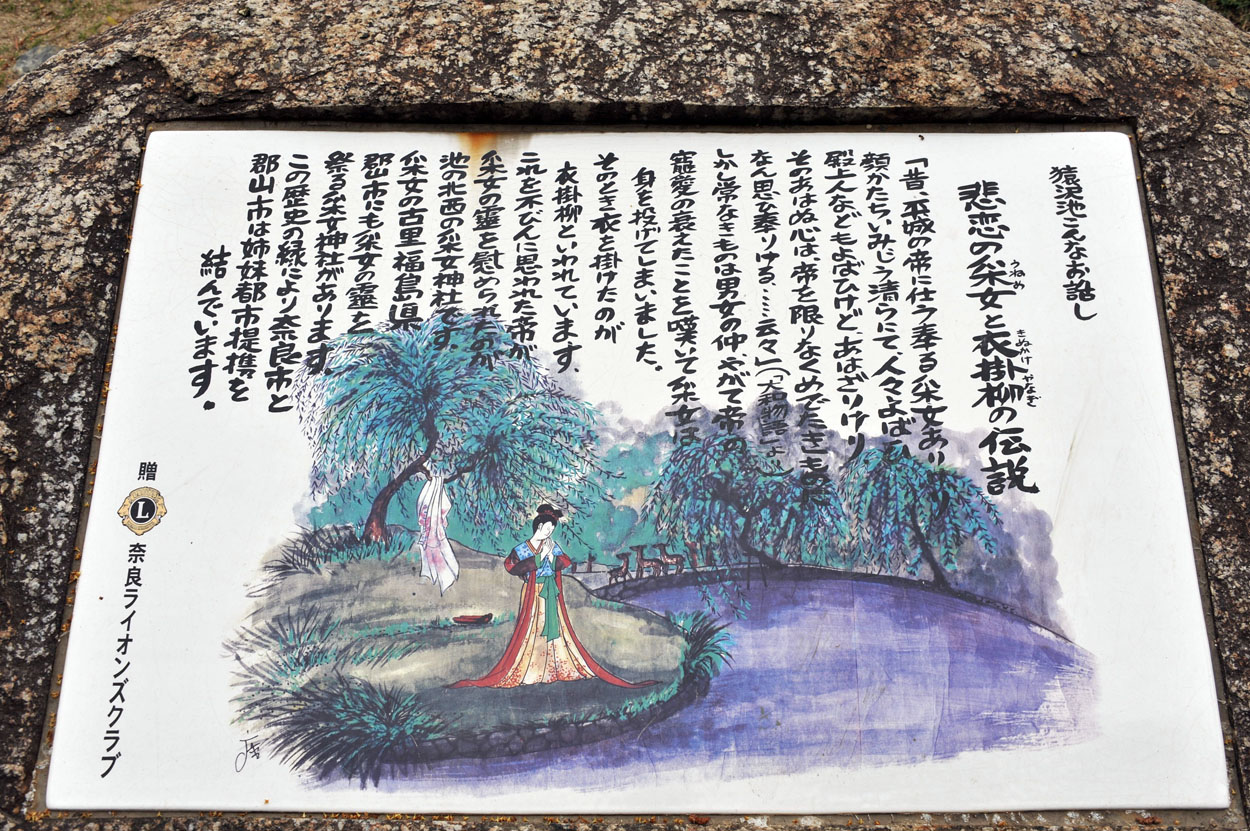 猿沢池こんなお話し
悲恋の采女と衣掛柳の伝説
うねめ
きぬかけ やなぎ
「昔、平城の帝に仕う奉る采女あり
顔かたち、いみじう清らにて、人々よばひ
殿上人などもよばひけど、あはざりけり
そのあはぬ心は、帝を限りなくめでたきもの
なん思ひ奉りける、……云々」(「大和物語」より
しかし常なきものは男女の仲、やがて帝の
寵愛の衰えたことを嘆いて采女は
身を投げてしまいました。
そのとき衣を掛けたのが
衣掛柳といわれています。
これを不びんに思われた帝が
采女の霊を慰められたのが
池の北西の采女神社です。
采女の古里福島県
郡山市にも采女の霊を
祭る采女神社があります。
この歴史の縁により奈良市と
郡山市は姉妹都市提携を
結んでいます。
贈
L
奈良ライオンズクラブ